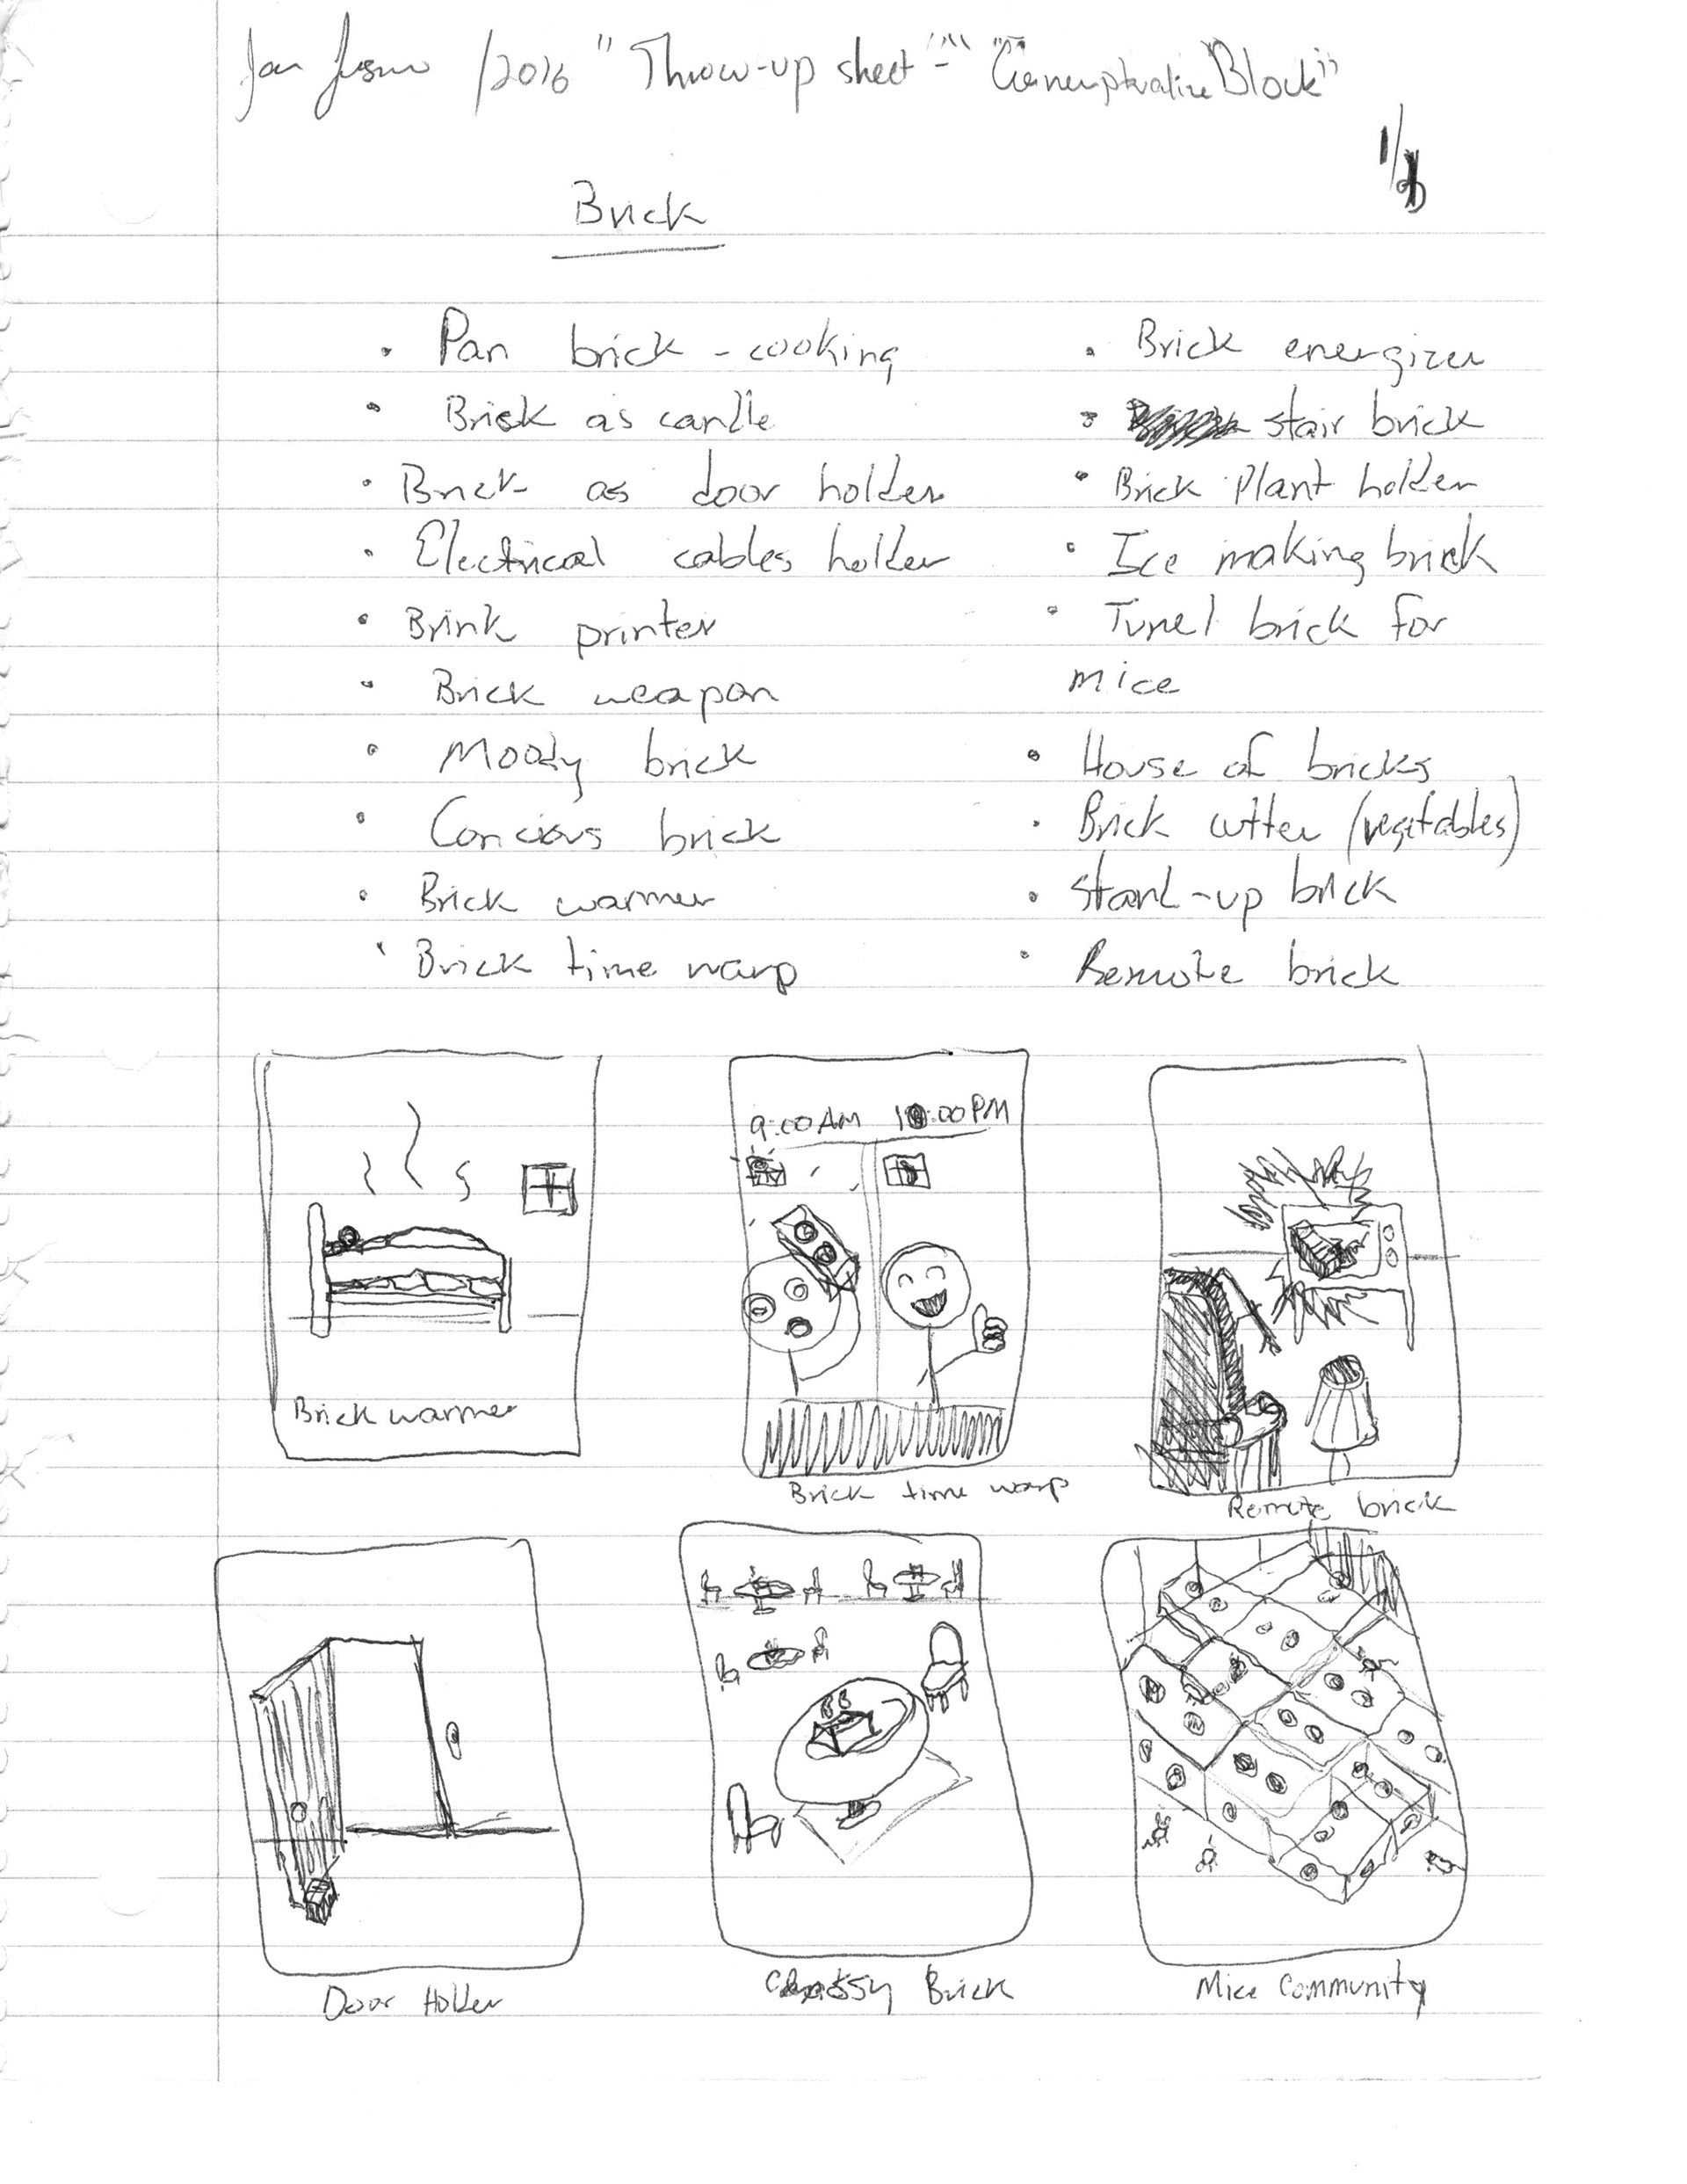 /2016 "Throw-up sheet" - " Block"
1/
Brick
• Pan brick - cooking
• Brick as candle
• Brick as door holder
• Electrical cables holder
• Brink printer
• Brick weapon
• Moody brick
• Concious brick
• Brick warmer
• Brick time warp
• Brick energizer
• stair brick
• Brick Plant holder
• Ice making brick
• Tunel brick for
mice
• House of bricks
• Brick cutter (vegetables)
• Stand-up brick
• Remote brick
Brick warmer
9:00 AM 10:00 PM
Brick time warp
Remote brick
Door Holder
Classy Brick
Mice Community